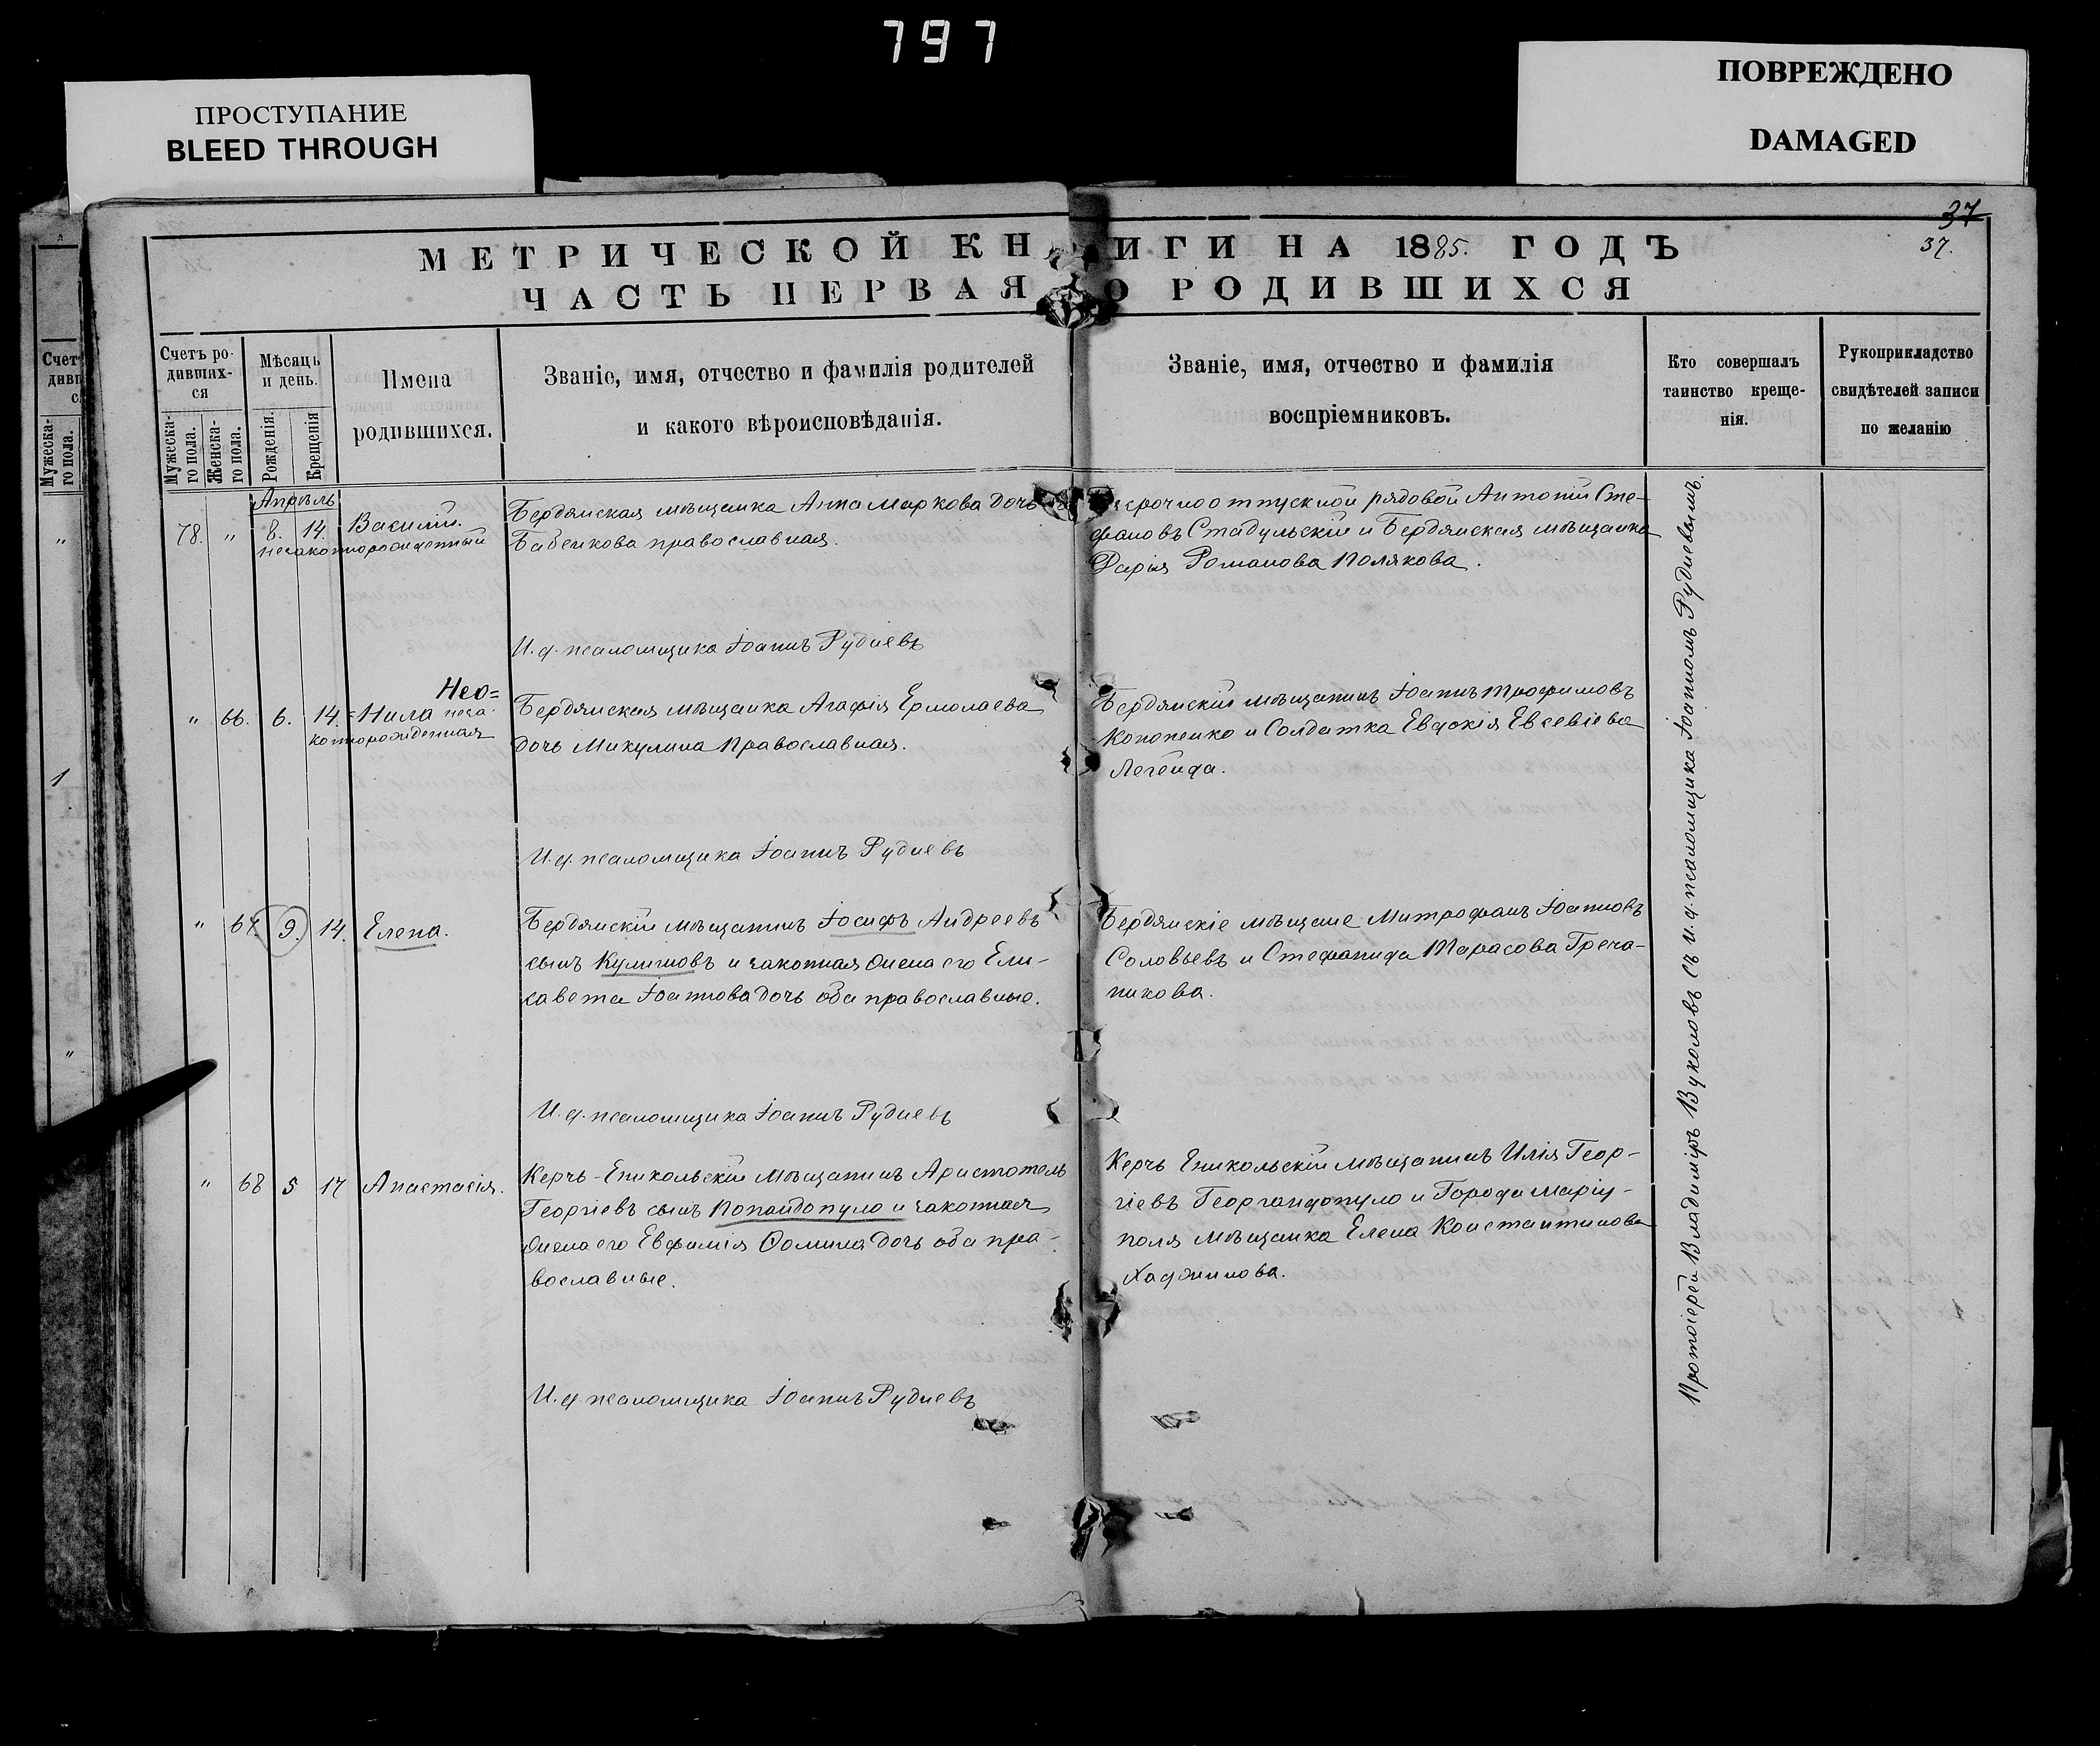 797
ПРОСТУПАНИЕ
BLEED THROUGH
ПОВРЕЖДЕНО
DAMAGED
37
37.
МЕТРИЧЕСКОЙ КНИГИ НА 1885. ГОДЪ
ЧАСТЬ ПЕРВАЯ О РОДИВШИХСЯ
Счетъ ро-
дивших-
ся
Мужеска-
го пола.
Женска-
го пола.
Мѣсяцъ
и день.
Рожденія.
Крещенія
Имена
родившихся.
Званіе, имя, отчество и фамилія родителей
и какого вѣроисповѣданія.
Званіе, имя, отчество и фамилія
воспріемниковъ.
Кто совершалъ
таинство креще-
нія.
Рукоприкладство
свидѣтелей записи
по желанію
Апрѣль
78. " 8. 14. Василій.
незаконнорожденный
Бердянская мѣщанка Анна Маркова дочь
Бабенкова православная.
рядовой Антоній Сте-
фановъ Стадульскій и Бердянская мѣщанка
Дарія Романова Полякова.
И. д. псаломщика Іоаннъ Рудневъ
" 66. 6. 14. Нео=
=нила неза-
коннорожденная
Бердянская мѣщанка Агафія Ермолаева
дочь Микулина Православная.
Бердянскій мѣщанинъ Іоаннъ Трофимовъ
Кононенко и Солдатка Евдокія Евсевіева
Легейда.
И. д. псаломщика Іоаннъ Рудневъ
" 67. 9. 14. Елена.
Бердянскій мѣщанинъ Іосифъ Андреевъ
сынъ Кулишовъ и законная жена его Ели-
савета Іоаннова дочь оба православные.
Бердянскіе мѣщане Митрофанъ Іоанновъ
Соловьевъ и Стефанида Тарасова Греча-
никова.
И. д. псаломщика Іоаннъ Рудневъ
" 68 5 17 Анастасія.
Керчь-Еникольскій мѣщанинъ Аристотель
Георгіевъ сынъ Попандопуло и законная
жена его Евфимія Фомина дочь оба пра-
вославные.
Керчь Еникольскій мѣщанинъ Илія Геор-
гіевъ Георгандопуло и Города Маріу-
поля мѣщанка Елена Константинова
Хаджинова.
И. д. псаломщика Іоаннъ Рудневъ
Протоіерей Владиміръ Вуколовъ съ и. д. псаломщика Іоанномъ Рудневымъ.